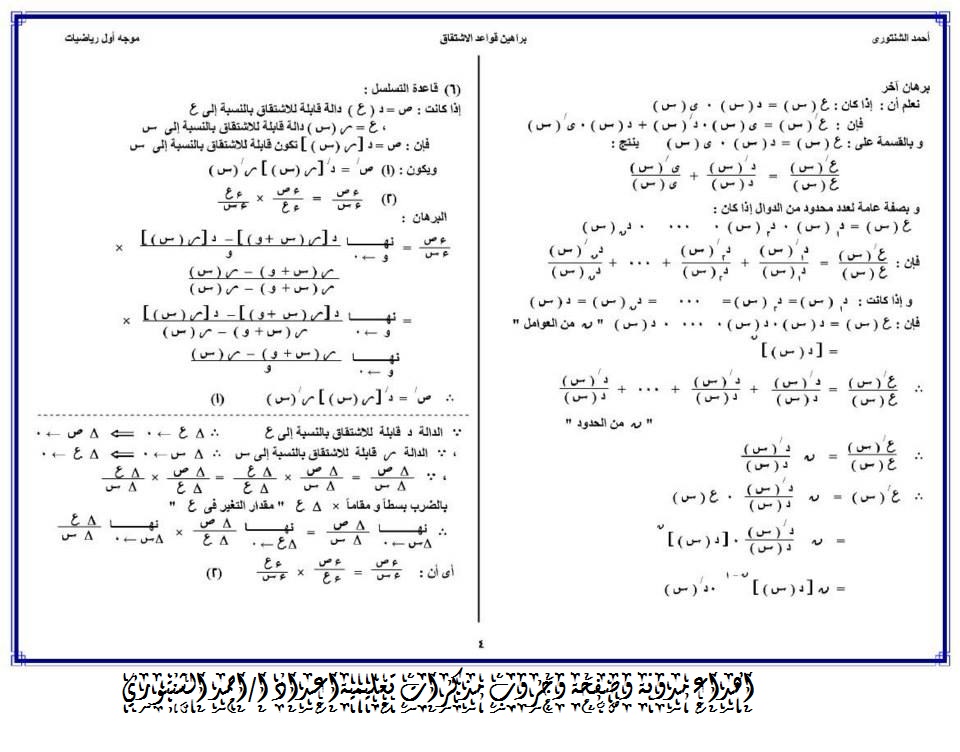 أحمد الشنتورى
براهين قواعد الاشتقاق
موجه أول رياضيات
برهان آخر
نعلم أن : إذا كان : ع ( س ) = د ( س ) ٠ ى ( س )
فإن : ع/( س ) = ى ( س ) ٠ د/( س ) + د ( س ) ٠ ى/( س )
و بالقسمة على : ع ( س ) = د ( س ) ٠ ى ( س ) ينتج :
ع/( س ) / ع ( س ) = د/( س ) / د ( س ) + ى/( س ) / ى ( س )
و بصفة عامة لعدد محدود من الدوال إذا كان :
ع ( س ) = د١ ( س ) ٠ د٢ ( س ) ٠ ٠٠٠ ٠ دں ( س )
فإن : ع/( س ) / ع ( س ) = د١/( س ) / د١( س ) + د٢/( س ) / د٢( س ) + ٠٠٠ + دں/( س ) / دں( س )
و إذا كانت : د١ ( س ) = د٢ ( س ) = ٠٠٠ = دں ( س ) = د ( س )
فإن : ع ( س ) = د ( س ) ٠ د ( س ) ٠ ٠٠٠ ٠ د ( س ) " ں من العوامل "
= [ د ( س ) ]ں
∴ ع/( س ) / ع ( س ) = د/( س ) / د ( س ) + د/( س ) / د ( س ) + ٠٠٠ + د/( س ) / د ( س )
" ں من الحدود "
∴ ع/( س ) / ع ( س ) = ں د/( س ) / د ( س )
∴ ع/( س ) = ں د/( س ) / د ( س ) ٠ ع ( س )
= ں د/( س ) / د ( س ) ٠ [ د ( س ) ]ں
= ں [ د ( س ) ]ں − ١ ٠ د/( س )
(٦) قاعدة التسلسل :
إذا كانت : ص = د ( ع ) دالة قابلة للاشتقاق بالنسبة إلى ع
، ع = ر ( س ) دالة قابلة للاشتقاق بالنسبة إلى س
فإن : ص = د [ ر ( س ) ] تكون قابلة للاشتقاق بالنسبة إلى س
ويكون : (١) ص/ = د/ [ ر ( س ) ] ر/( س )
(٢) ءص / ءس = ءص / ءع × ءع / ءس
البرهان :
ءص / ءس = نهــا و ← ٠ د [ ر ( س + و ) ] − د [ ر ( س ) ] / و ×
ر ( س + و ) − ر ( س ) / ر ( س + و ) − ر ( س )
= نهــا و ← ٠ د [ ر ( س + و ) ] − د [ ر ( س ) ] / ر ( س + و ) − ر ( س ) ×
نهــا و ← ٠ ر ( س + و ) − ر ( س ) / و
∴ ص/ = د/ [ ر ( س ) ] ر/( س ) (١)
∵ الدالة د قابلة للاشتقاق بالنسبة إلى ع ∴ Δ ع ← ٠ ⟸ Δ ص ← ٠
، ∵ الدالة ر قابلة للاشتقاق بالنسبة إلى س ∴ Δ س ← ٠ ⟸ Δ ع ← ٠
، ∵ Δ ص / Δ س = Δ ص / Δ س × Δ ع / Δ ع = Δ ص / Δ ع × Δ ع / Δ س
بالضرب بسطاً و مقاماً × Δ ع " مقدار التغير فى ع "
∴ نهــا Δس ← ٠ Δ ص / Δ س = نهــا Δع ← ٠ Δ ص / Δ ع × نهــا Δس ← ٠ Δ ع / Δ س
أى أن : ءص / ءس = ءص / ءع × ءع / ءس (٢)
٤
اهداء مدونة وصفحة وجروب مذكرات تعليمية اعداد أ/احمد الشنتوري